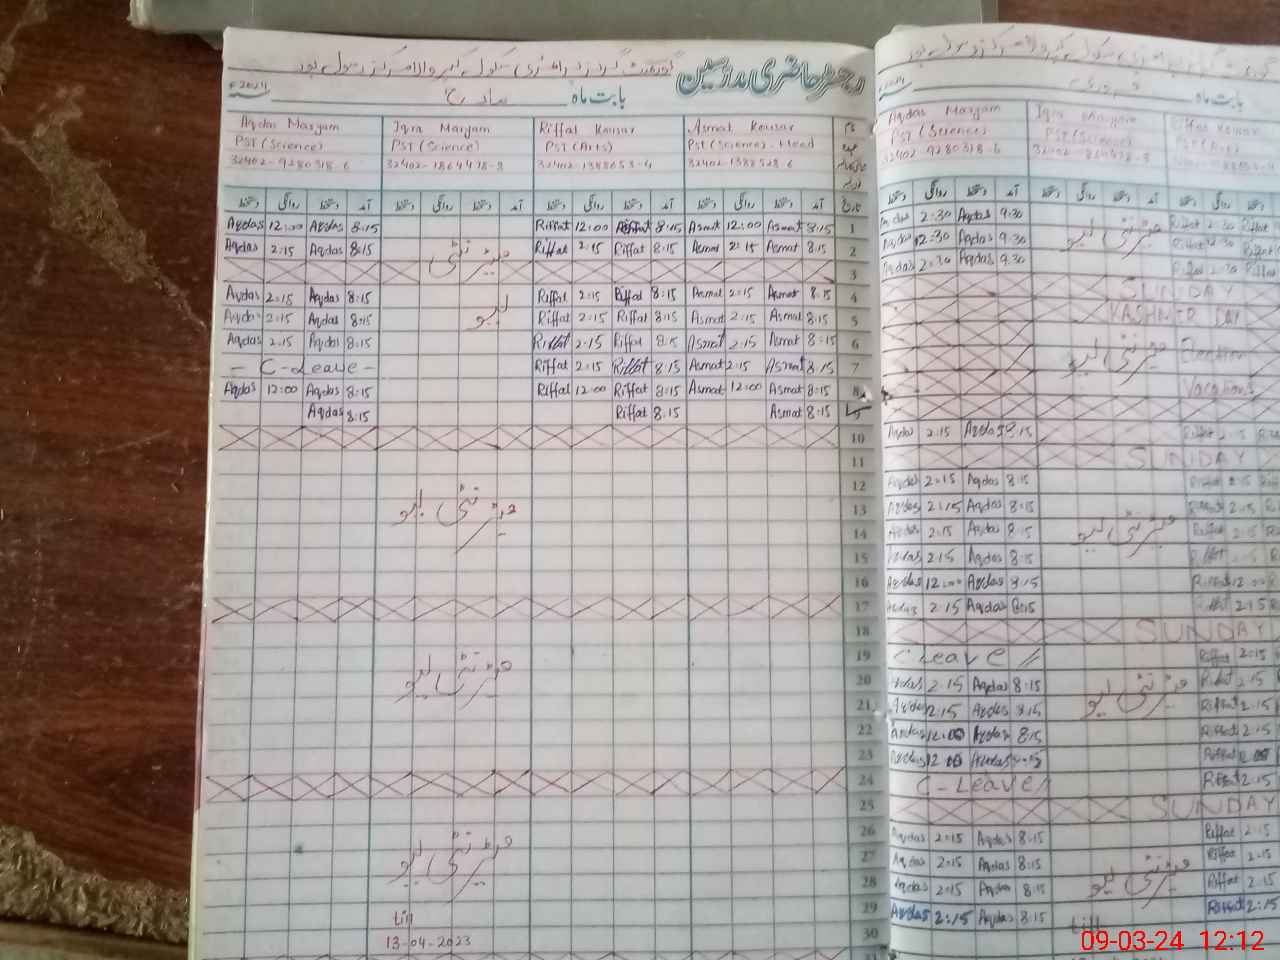 رجسٹر حاضری مدارسین گورنمنٹ گرلز پرائمری سکول
بابت ماہ مارچ 2024ء
Asmat Kousar
PST (Science) Head
Riffat Kousar
PST (Arts)
Iqra Maryam
PST (Science)
Aqdas Maryam
PST (Science)
32402-9280318-6
تاریخ آمد دستخط روانگی دستخط آمد دستخط روانگی دستخط آمد دستخط روانگی دستخط آمد دستخط روانگی دستخط
Aqdas 12:00 Aqdas 8:15 Riffat 12:00 Riffat 8:15 Asmat 12:00 Asmat 8:15 1
Aqdas 2:15 Aqdas 8:15 Riffat 2:15 Riffat 8:15 Asmat 2:15 Asmat 8:15 2
3
Aqdas 2:15 Aqdas 8:15 Riffat 2:15 Riffat 8:15 Asmat 2:15 Asmat 8:15 4
Aqdas 2:15 Aqdas 8:15 Riffat 2:15 Riffat 8:15 Asmat 2:15 Asmat 8:15 5
Aqdas 2:15 Aqdas 8:15 Riffat 2:15 Riffat 8:15 Asmat 2:15 Asmat 8:15 6
- C-Leave - Riffat 2:15 Riffat 8:15 Asmat 2:15 Asmat 8:15 7
Aqdas 12:00 Aqdas 8:15 Riffat 12:00 Riffat 8:15 Asmat 12:00 Asmat 8:15 8
Aqdas 8:15 Riffat 8:15 Asmat 8:15 9
10
11
12
میٹرنٹی لیو 13
14
15
16
17
18
19
میٹرنٹی لیو 20
21
22
23
24
25
26
میٹرنٹی لیو 27
28
29
till 30
13-04-2023
31
بابت ماہ فروری
Aqdas Maryam
PST (Science)
32402-9280318-6
Iqra Maryam
PST (Science)
Riffat Kousar
Aqdas 2:30 Aqdas 9:30 میٹرنٹی لیو Riffat 2:30 Riffat
Aqdas 12:30 Aqdas 9:30 Riffat 12:30 Riffat
Aqdas 2:30 Aqdas 9:30 Riffat 2:30 Riffat
SUNDAY
KASHMIR DAY
میٹرنٹی لیو Election
Vacations
Aqdas 2:15 Aqdas 8:15 Riffat 2:15
SUNDAY
Aqdas 2:15 Aqdas 8:15 Riffat 2:15
Aqdas 2:15 Aqdas 8:15 Riffat 2:15
Aqdas 2:15 Aqdas 8:15 میٹرنٹی لیو Riffat 2:15
Aqdas 2:15 Aqdas 8:15 Riffat 2:15
Aqdas 12:00 Aqdas 8:15 Riffat 12:00
Aqdas 2:15 Aqdas 8:15 Riffat 2:15
SUNDAY
C Leave // Riffat 2:15
Aqdas 2:15 Aqdas 8:15 میٹرنٹی لیو Riffat 2:15
Aqdas 2:15 Aqdas 8:15 Riffat 2:15
Aqdas 12:00 Aqdas 8:15 Riffat 2:15
Aqdas 12:00 Aqdas 8:15 Riffat
C-Leave // Riffat 2:15
SUNDAY
Aqdas 2:15 Aqdas 8:15 Riffat 2:15
Aqdas 2:15 Aqdas 8:15 میٹرنٹی لیو Riffat 2:15
Aqdas 2:15 Aqdas 8:15 Riffat 2:15
Aqdas 2:15 Aqdas 8:15 till Riffat 2:15
09-03-24 12:12